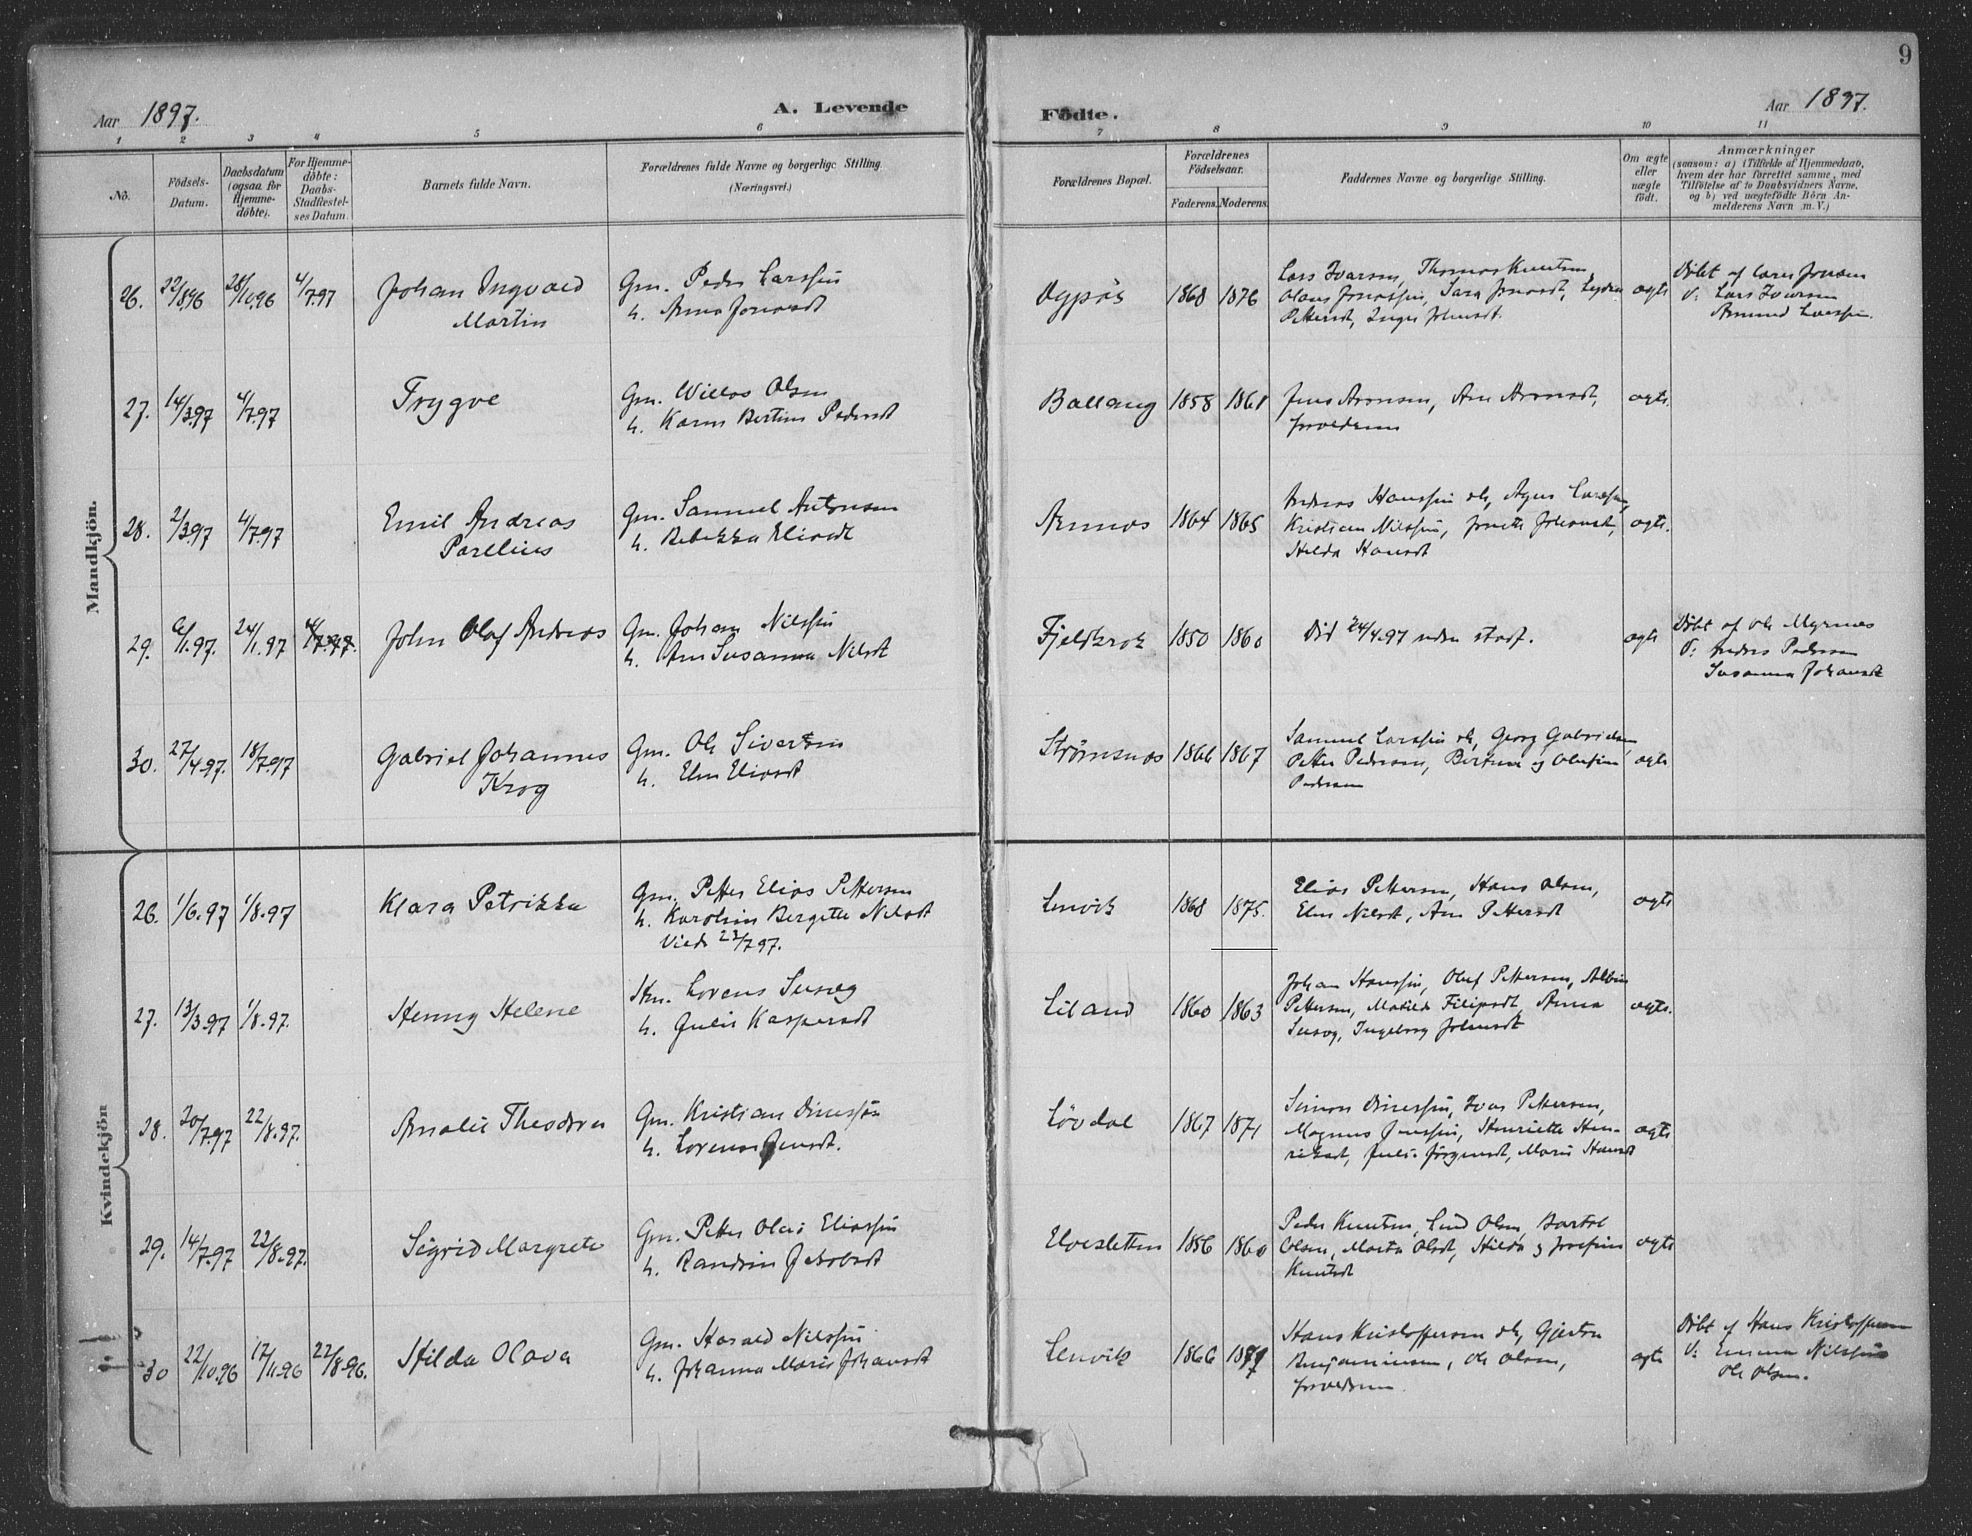 9
Aar 1897.
A. Levende
Födte.
Aar 1897.
1 2 3 4 5 6 7 8 9 10 11
No.
Födsels-
Datum.
Daabsdatum
(ogsaa for
Hjemme-
döbte).
For Hjemme-
döbte:
Daabs-
Stadfæstel-
ses Datum.
Barnets fulde Navn.
Forældrenes fulde Navne og borgerlige Stilling.
(Næringsvei.)
Forældrenes Bopæl.
Forældrenes
Födselsaar.
Faderens. Moderens.
Faddernes Navne og borgerlige Stilling.
Om ægte
eller
uægte
födt.
Anmærkninger
(saasom: a) i Tilfælde af Hjemmedaab,
hvem der har forrettet samme, med
Tilföielse af to Daabsvidners Navne,
og b) ved uægtefödte Börn An-
melderens Navn m.V.)
Mandkjön.
26. 22/8.96 28/10.96 4/7.97
Johan Ingvald
Martin
Gm. Peder Larssøn
h. Anna Jonasdt
1868 1876
Lars Ivarsen, Thomas Knutsen,
Olaus Jonassøn, Sara Jonasdt,
Petersdt, Inger Johnsdt.
ægte
Døbt af Lars Jonsen
V: Lars Ivarsen
Amund Larssøn.
27. 14/3.97 4/7.97
Trygve
Gm. Olsen
h. Karen Bertine Pedersdt
Ballang 1858 1861
Jens Aronsen, Ane Aronsdt,
forældrene
ægte.
28. 2/3.97 4/7.97
Emil Andreas
Parelius
Gm. Samuel Antonsen
h. Rebekka Eliasdt
Arnnes 1864 1865
Andreas Hanssøn ,
Kristian Nilssøn,
Hilda Hansdt
ægte.
29. 6/1.97. 24/1.97 4/7.97.
John Olaf Andreas
Gm. Johan Nilssøn
h. Ane Susanna Nilsdt
Fjeldkrok 1850 1860
Død 24/4.97 uden stadf.
ægte
Døbt af Ole Myrnes
V: Anders Pedersen
Susanna Johansdt
30. 27/4.97. 18/7.97
Gabriel Johannes
Krog
Gm. Ole Sivertsen
h. Elen Eliasdt
Strømsnes 1866 1867
Samuel Larssøn , Georg Gabrielsen,
Petter Pedersen, Bertine og Olufine
Pedersen
ægte
Kvindekjön
26. 1/6.97 1/8.97
Klara Petrikka
Gm. Petter Elias Pettersen
h. Karoline Bergette Nilsdt
Viede 23/7 97.
Lenvik 1868 1875.
Elias Pettersen, Hans Olsen,
Elen Nilsdt, Ane Pettersdt
ægte
27. 13/3.97 1/8.97.
Henny Helene
h. Julie Kaspersdt
Liland 1860 1863
Johan Hanssøn, Oluf Pettersen, Albin
Pettersen, Matilde Filipsdt, Anna
Ingeborg Johnsdt
ægte.
28. 20/7.97 22/8.97.
Amalie Theodora
Gm. Kristian Dinessøn
h. Lorense Jensdt.
Løvdal 1867 1871
Simon Dinessøn, Ivar Pettersen,
Magnus Jenssøn, Henriette Hen-
riksdt, Julie Jørgensdt, Marie Hansdt
ægte
29. 14/7.97 22/8.97.
Sigrid Margrete
Gm. Petter Olai Eliassøn
h. Randine Jakobsdt
Elvesletten 1856 1860
Peder Knutsen, Olsen, Bartol
Olsen, Marta Olsdt, Hilda og Josefine
Knutsdt
ægte
30 22/10.96 17/11.96 22/8.96.
Hilda Olava
Gm. Harald Nilssøn
h. Johanna Marie Johansdt
Lenvik 1866
Hans Kristoffersen ,
Benjaminsen, Ole Olsen,
forældrene.
ægte
Døbt af Hans Kristoffersen
V: Nilssøn
Ole Olsen.